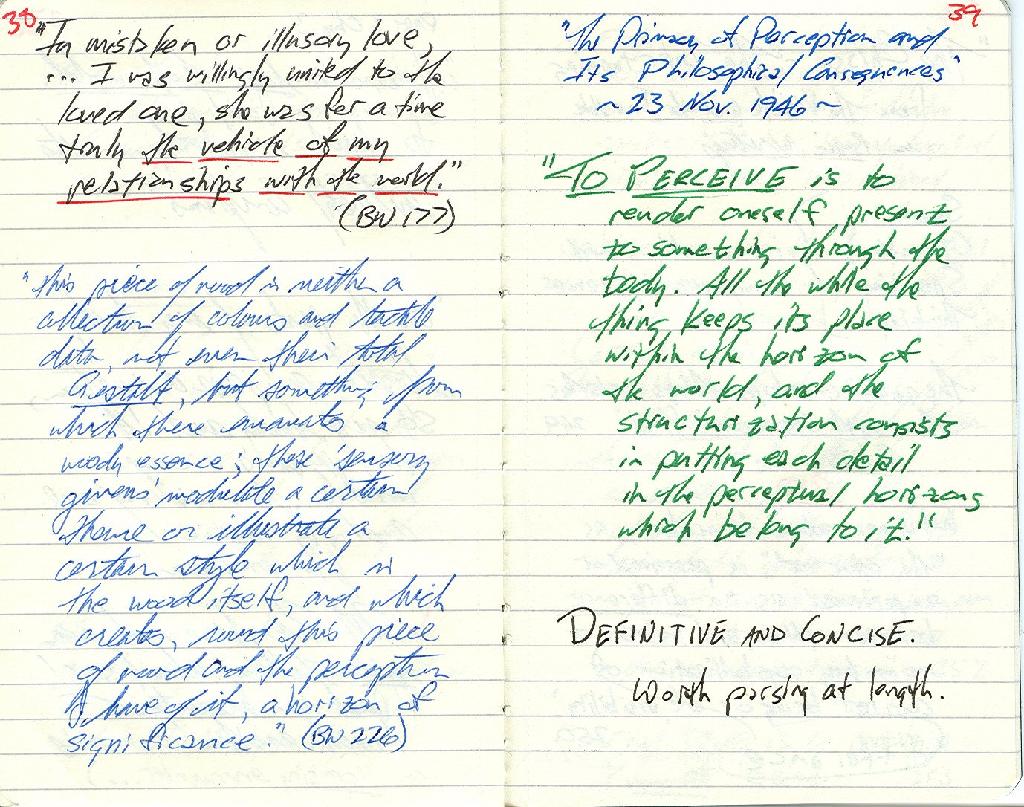 38
"In mistaken or illusory love,
... I was willingly united to the
loved one, she was for a time
truly the vehicle of my
relationships with the world."
(BW 177)
"this piece of wood is neither a
collection of colours and tactile
data, not even their total
Gestalt, but something from
which there emanates a
woody essence; these 'sensory
givens' modulate a certain
theme or illustrate a
certain style which is
the wood itself, and which
creates, round this piece
of wood and the perception
I have of it, a horizon of
significance." (BW 226)
39
"The Primacy of Perception and
Its Philosophical Consequences"
~ 23 Nov. 1946 ~
"TO PERCEIVE is to
render oneself present
to something through the
body. All the while the
thing keeps its place
within the horizon of
the world, and the
structurization consists
in putting each detail
in the perceptual horizons
which belong to it."
DEFINITIVE AND CONCISE.
Worth parsing at length.